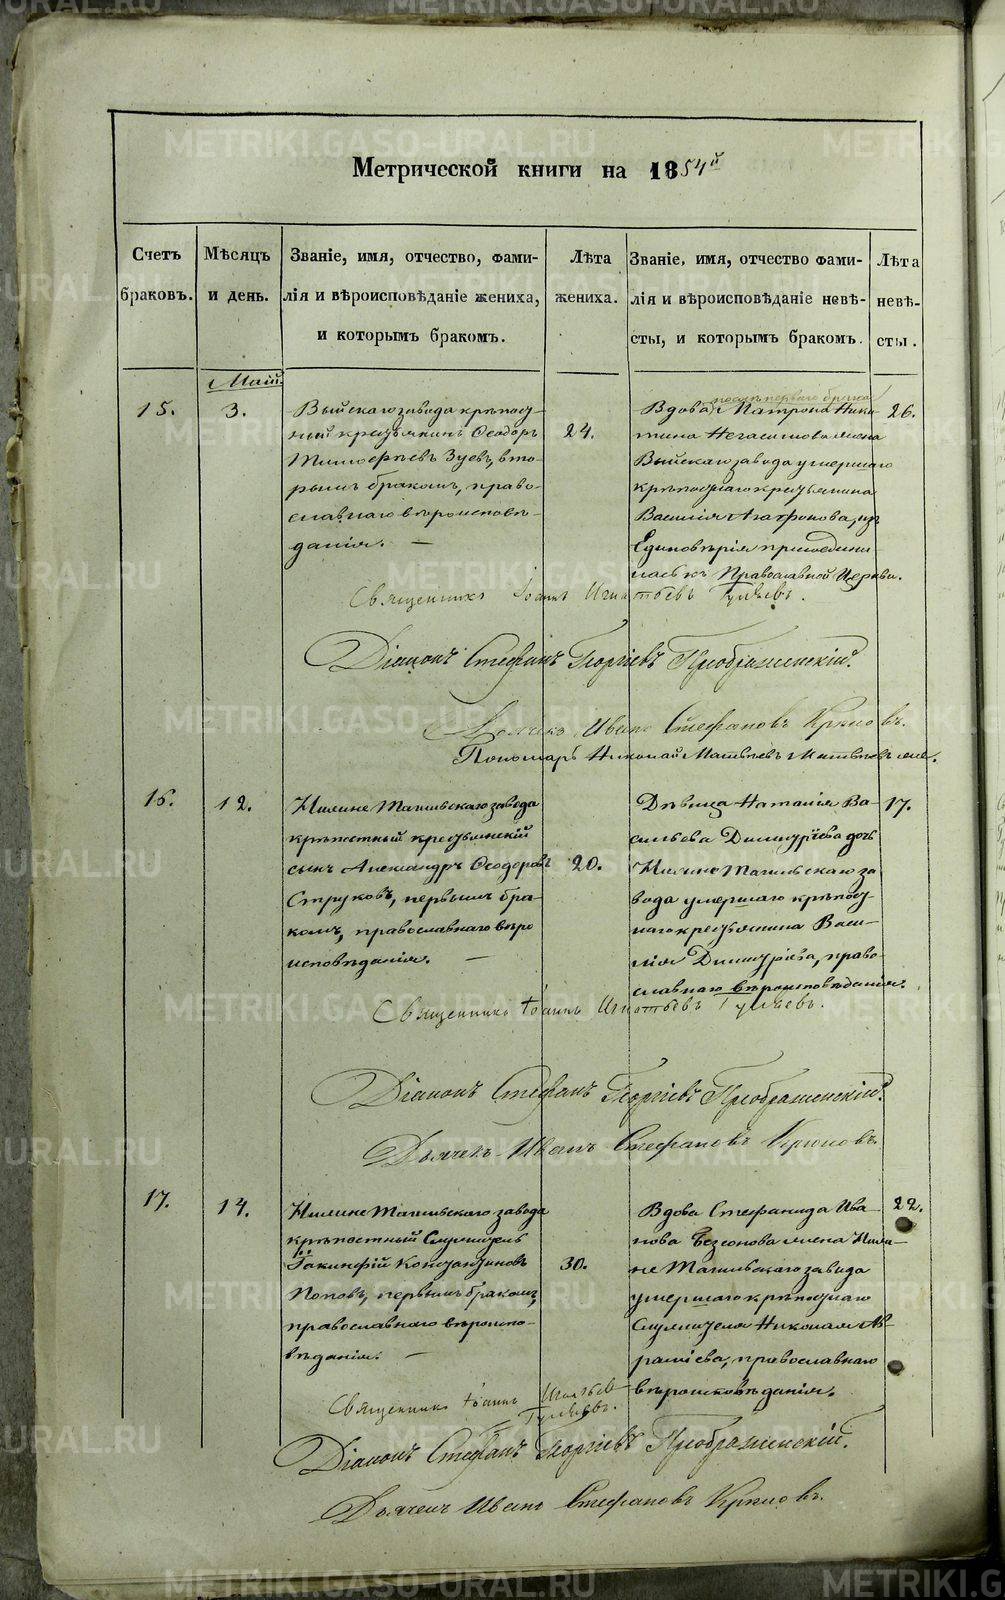 Метрической книги на 1854й
Счетъ браковъ.
Мѣсяцъ и день.
Званіе, имя, отчество, фами-
лія и вѣроисповѣданіе жениха,
и которымъ бракомъ.
Лѣта жениха.
Званіе, имя, отчество фами-
лія и вѣроисповѣданіе невѣ-
сты, и которымъ бракомъ.
Лѣта невѣ-
сты.
Май.
15.
3.
Выйскаго завода крѣпост-
ный крестьянинъ Ѳеодоръ
Тимоѳѣевъ Зуевъ, вто-
рымъ бракомъ, право-
славнаго вѣроисповѣ-
данія. —
24.
послѣ перваго брака
Вдова Матрона Ники-
тина
жена
Выйскаго завода умершаго
крѣпостнаго крестьянина
Василія Агафонова, изъ
Единовѣрія присоедини-
лась къ Православной Церкви.
26.
Священникъ Іоаннъ Игнатьевъ Гуляевъ.
Діаконъ Стефанъ Георгіевъ Преображенскій.
Иванъ Стефановъ
Пономарь Николай Матвѣевъ
16.
12.
Нижне Тагильскаго завода
крѣпостный крестьянскій
сынъ Александръ Ѳеодоровъ
Струковъ, первымъ бра-
комъ, православнаго вѣро
исповѣданія. —
20.
Дѣвица Наталія Ва-
сильева Димитріева дочь
Нижне Тагильскаго за
вода умершаго крѣпост
наго крестьянина Васи-
лія Димитріева, право-
славнаго вѣроисповѣданія.
17.
Священникъ Іоаннъ Игнатьевъ Гуляевъ.
Діаконъ Стефанъ Георгіевъ Преображенскій.
Дьячекъ Иванъ Стефановъ
17.
14.
Нижне Тагильскаго завода
крѣпостный Служитель
Іакинфій Константиновъ
Поповъ, первымъ бракомъ,
православнаго вѣроиспо-
вѣданія. —
30.
Вдова Стефанида Ива-
нова Безсонова жена Ниж-
не Тагильскаго завода
умершаго крѣпостнаго
Служителя Николая Ав-
раміева, православнаго
вѣроисповѣданія.
22.
Священникъ Іоаннъ Игнатьев
Гуляевъ.
Діаконъ Стефанъ Георгіевъ Преображенскій.
Дьячекъ Иванъ Стефановъ
METRIKI.GASO-URAL.RU